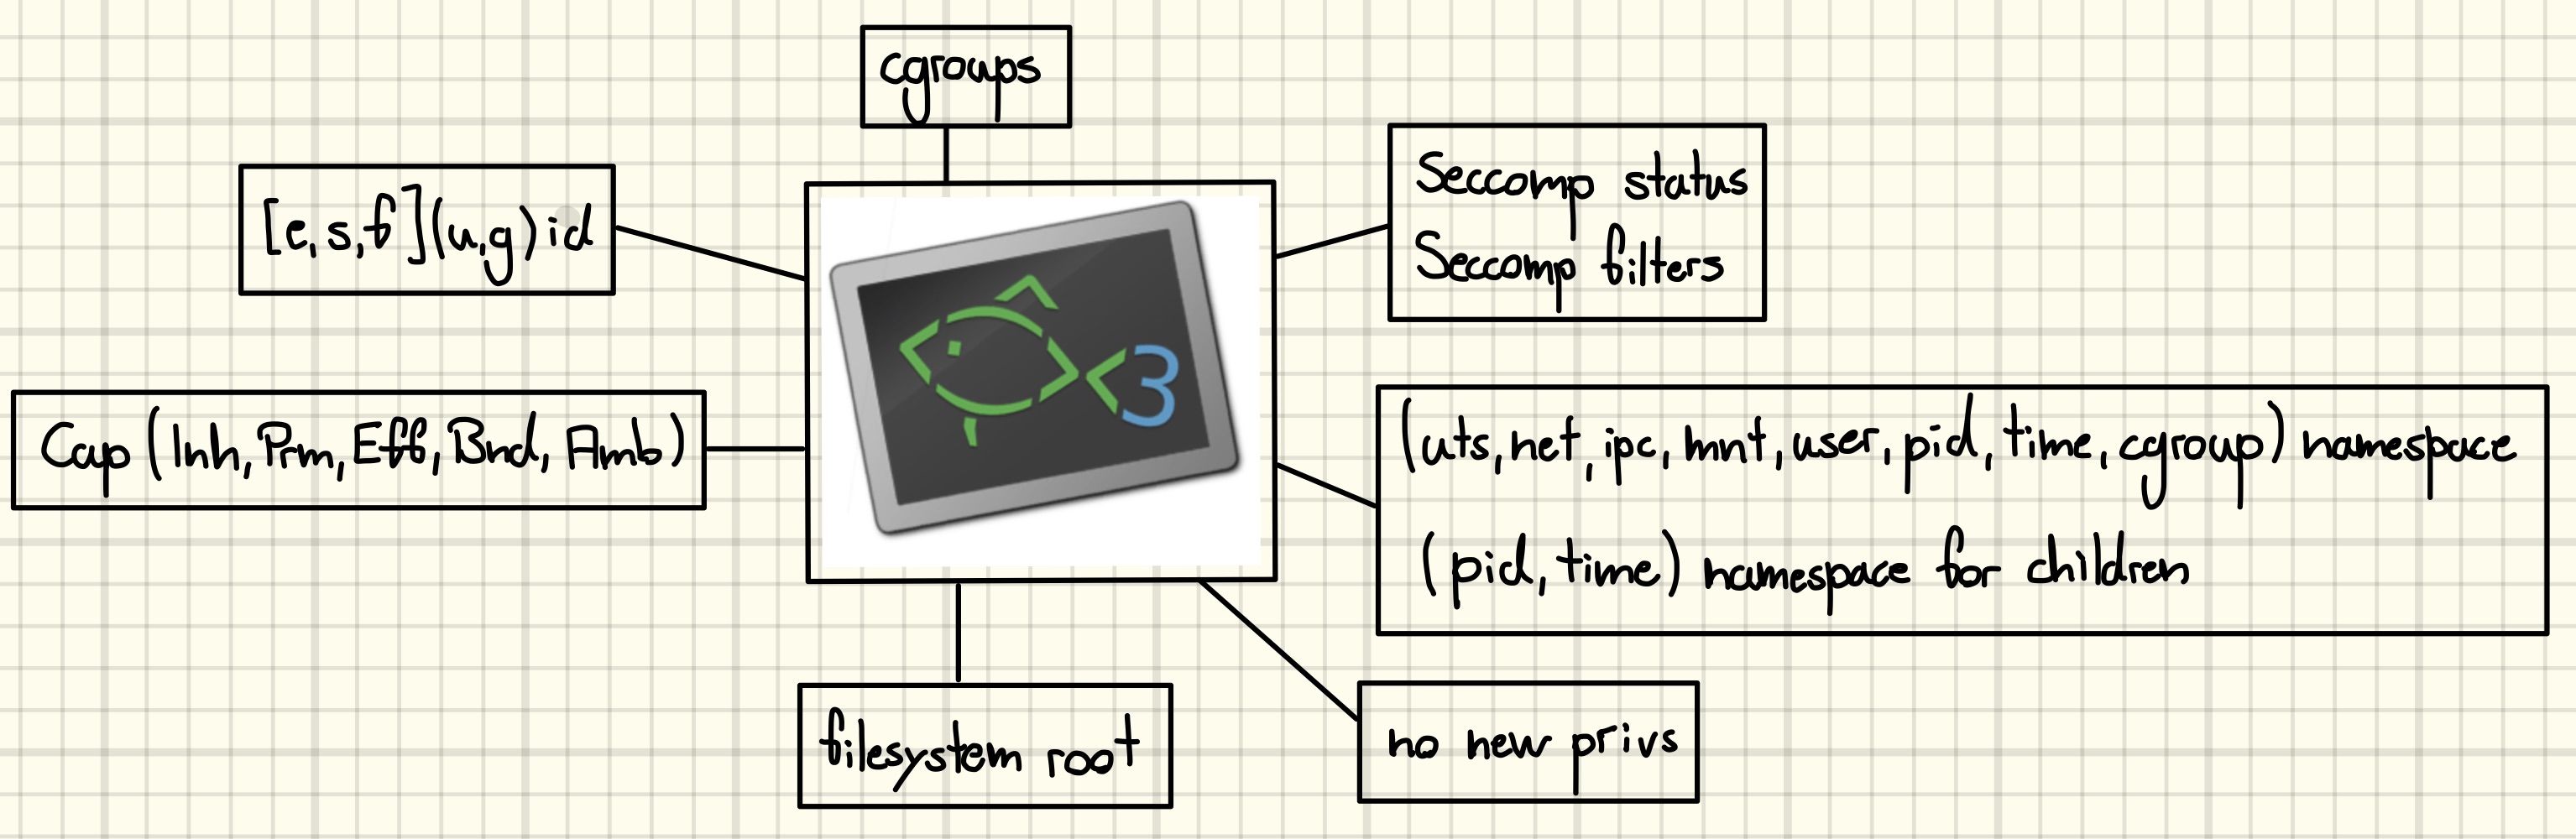 cgroups
[e,s,f](u,g)id
Seccomp status
Seccomp filters
Cap (Inh, Prm, Eff, Bnd, Amb)
<3
(uts, net, ipc, mnt, user, pid, time, cgroup) namespace
(pid, time) namespace for children
filesystem root
no new privs